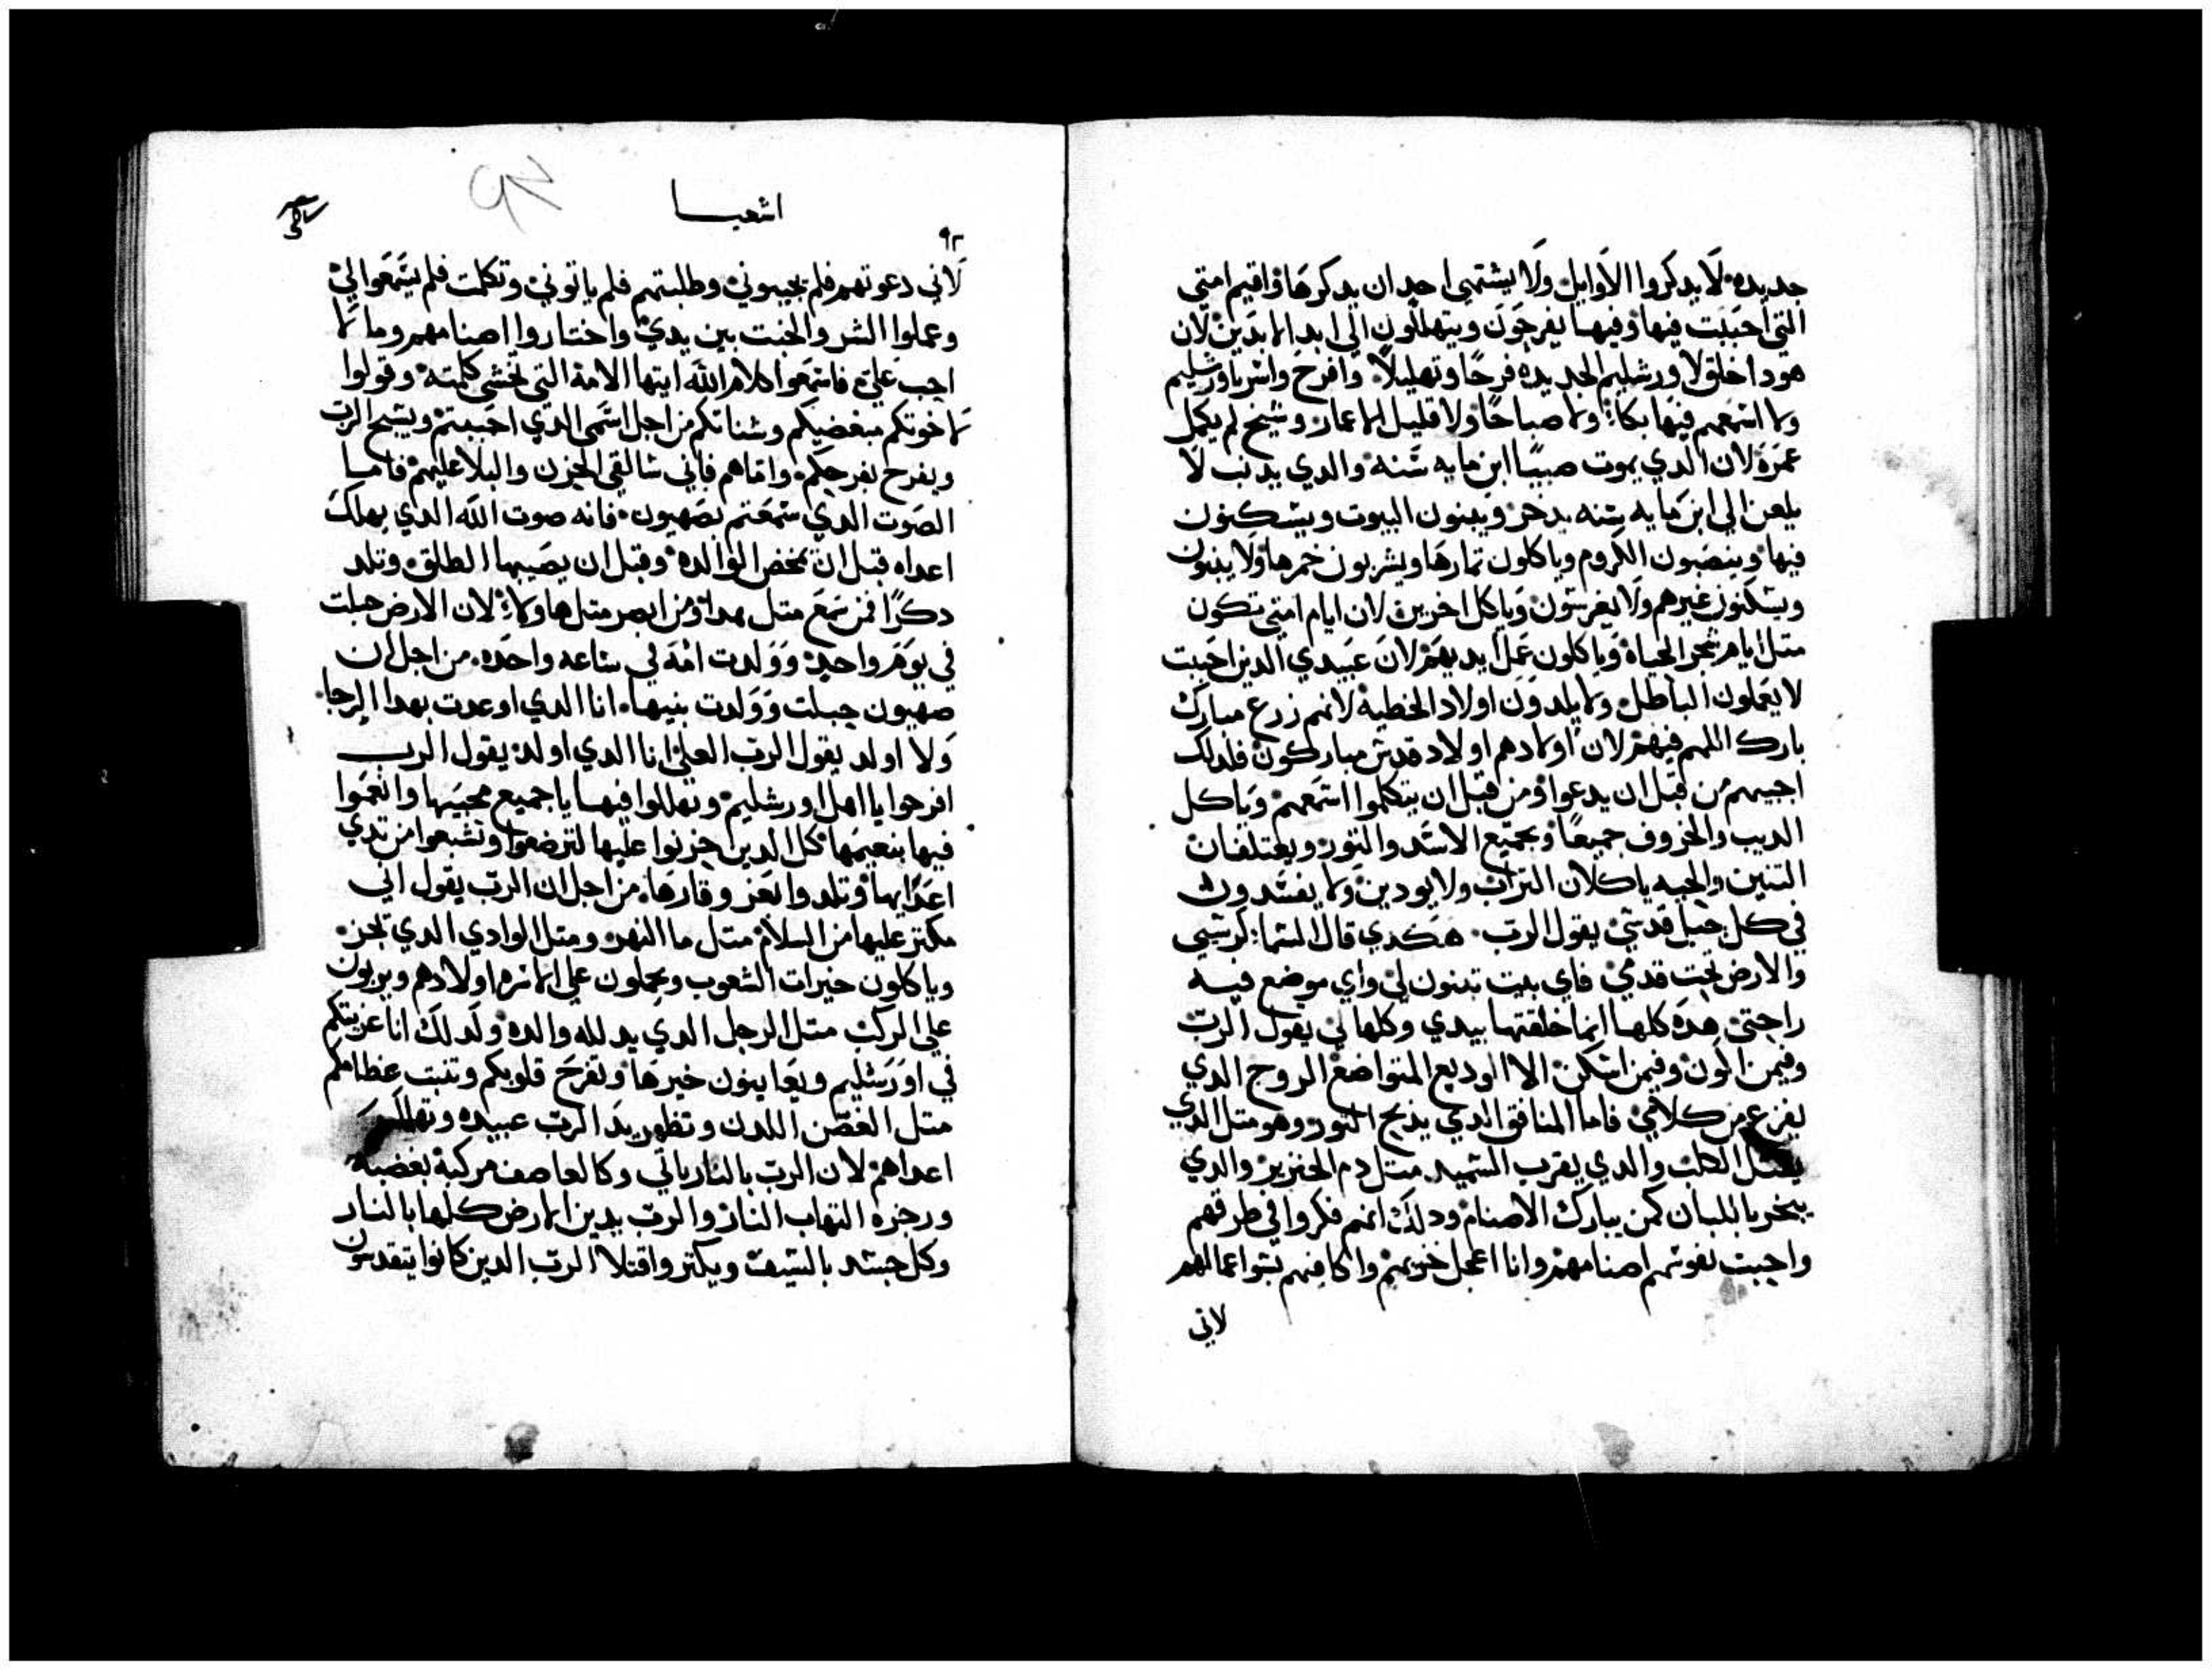 جديده لا يدكروا الاوايل ولا يشتهي احد ان يدكرها واقيم امتي
التي احببت فيها وفيها يفرحون ويتهللون الي ابد الابدين لان
هودا اخلق لاورشليم الجديده فرحا وتهليلا وافرح واسر باورشليم
ولا اسمعهم فيها بكا ولا صياحا ولا قليل الاعمار وشيخ لم يكمل
عمره لان الدي يموت صبيا ابن مايه سنه والدي يدنب لا
يلعن الي ابن مايه سنه يدخر ويبنون البيوت ويسكنون
فيها وينصبون الكروم وياكلون تمارها ويشربون خمرها ولا يبنون
ويسكنون غيرهم ولا يغرسون وياكل اخرين لان ايام امتي تكون
متل ايام شجر الحياه وياكلون عمل ايديهم لان عبيدي الدين احببت
لا يعملون الباطل ولا يلدون اولاد الخطيه لانهم زرع مبارك
بارك اللهم فيهم لان اولادهم اولاد قدس مباركون فلدلك
اجيبهم من قبل ان يدعوا ومن قبل ان يتكلموا اسمعهم وياكل
الديب والخروف جميعا ويجتمع الاسد والتور ويعتلفان
التنين والحيه ياكلان التراب ولا يودين ولا يفسدون
في كل جبل قدسي يقول الرب هكدي قال السما كرسي
والارض تحت قدمي فاي بيت تبنون لي واي موضع فيه
راحتي هده كلها انما خلقتها بيدي وكلها لي يقول الرب
وفيمن اكون وفيمن اسكن الا الوديع المتواضع الروح الدي
يفزع من كلامي فاما المنافق الدي يدبح التور وهو متل الدي
يقتل الكلب والدي يقرب السميد متل دم الخنزير والدي
يبخر باللبان كمن يبارك الاصنام ودلك انهم فكروا في طرقهم
واحببت نفوسهم اصنامهم وانا اعجل خزيهم واكافيهم بسوا اعمالهم
لاني
اشعيا
٩٢
لاني دعوتهم فلم يجيبوني وطلبتهم فلم ياتوني وتكلمت فلم يسمعوا لي
وعملوا الشر والخبت بين يدي واختاروا اصنامهم وما لا
احب علي فاسمعوا كلام الله ايتها الامة التي تخشي كلمته وقولوا
لاخوتكم مبغضيكم وشناتكم من اجل اسمي الدي احببتم ويسبح الرب
ويفرح بفرحكم واماهم فاني سالقي الحزن والبلا عليهم فاما
الصوت الدي سمعتم بصهيون فانه صوت الله الدي يهلك
اعداه قبل ان تمخض الوالده وقبل ان يصيبها الطلق وتلد
دكرا فمن سمع متل هدا ومن ابصر متل هاولا لان الارض حبلت
في يوم واحد وولدت امه في ساعه واحده من اجل ان
صهيون حبلت وولدت بنيها انا الدي اوعدت بهدا الرجا
ولا اولد يقول الرب العلي انا الدي اولد يقول الرب
افرحوا يا اهل اورشليم وتهللوا فيها يا جميع محبيها وانعموا
فيها بنعيمها كل الدين حزنوا عليها لترضعوا وتشبعوا من تدي
اعدايها وتلدوا بعز وقارها من اجل ان الرب يقول اني
مكتر عليها من السلام متل ما النهر ومتل الوادي الدي تجر
وياكلون خيرات الشعوب ويحملون علي الاسره اولادهم ويربون
علي الركب متل الرجل الدي يدلله والده ولدلك انا عزيتكم
في اورشليم ويعاينون خيرها وتفرح قلوبكم وتنبت عظامكم
متل الغصن اللدن وتظهر يد الرب عبيده
اعداهم لان الرب بالنار ياتي وكالعاصف مركبة بغضبه
ورجزه التهاب النار والرب يدين الارض كلها بالنار
وكل جسد بالسيف ويكتر واقتلا الرب الدين كانوا يتقدسون